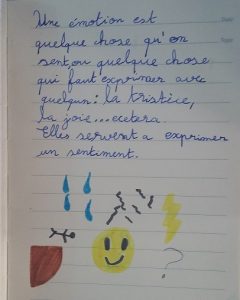 Une émotion est
quelque chose qu'on
sent, ou quelque chose
qui faut exprimer avec
quelqun : la tristice,
la joie...ecetera.
Elles servent a exprimer
un sentiment.
?